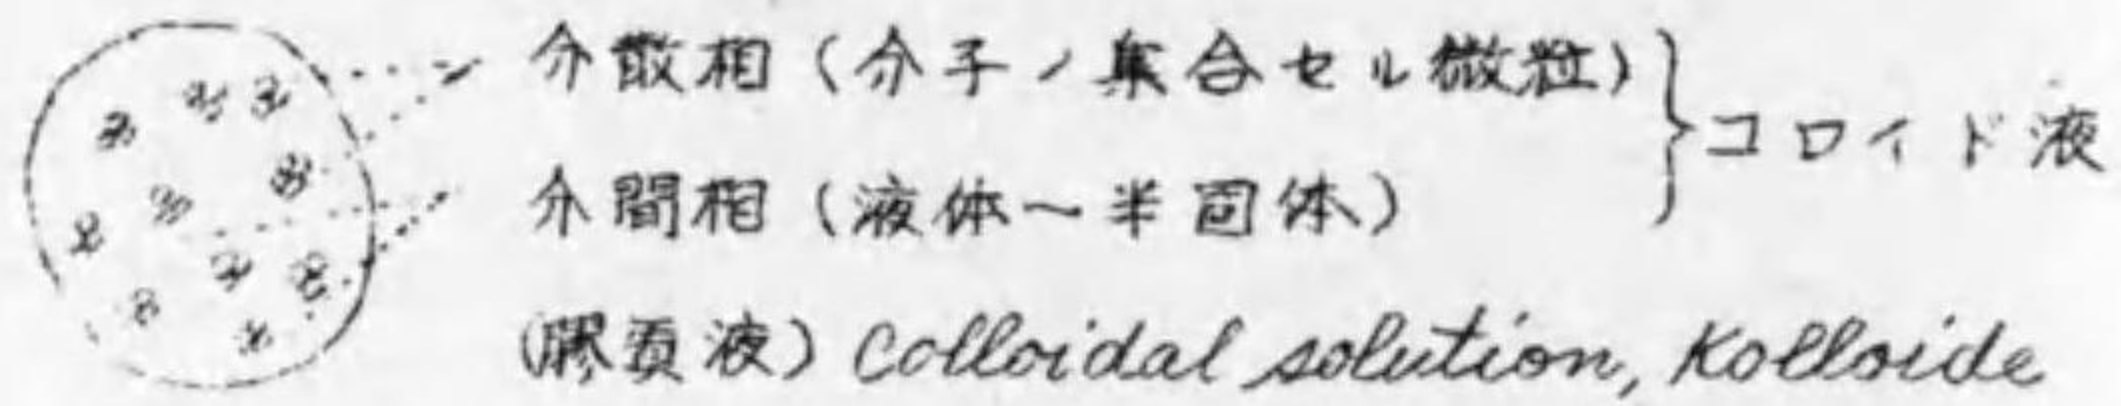 分散相（分子ノ集合セル微粒）
分間相（液体～半固体）
コロイド液
（膠質液）Colloidal solution, Kolloide